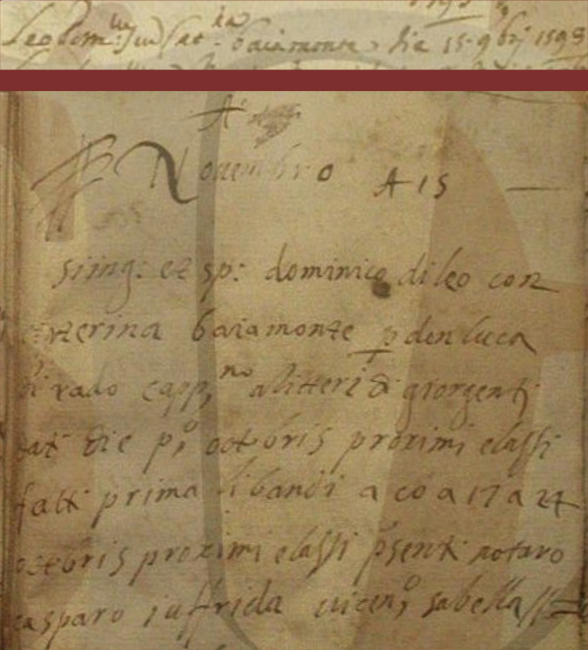 Leo Dom:cu Jud Cat:na baiamonte die 15 9bris 1598
A'
Novembro A 15
siing: et sp: dominico di leo con
caterina baiamonte p don luca
di rado capp,no alitteri di giorgenti
dat die p,o octobris proximi elassi
fatti prima li bandi a co a 17 a 24
octobris proximi elassi psenti notaro
casparo iuffrida vicen,o sabella